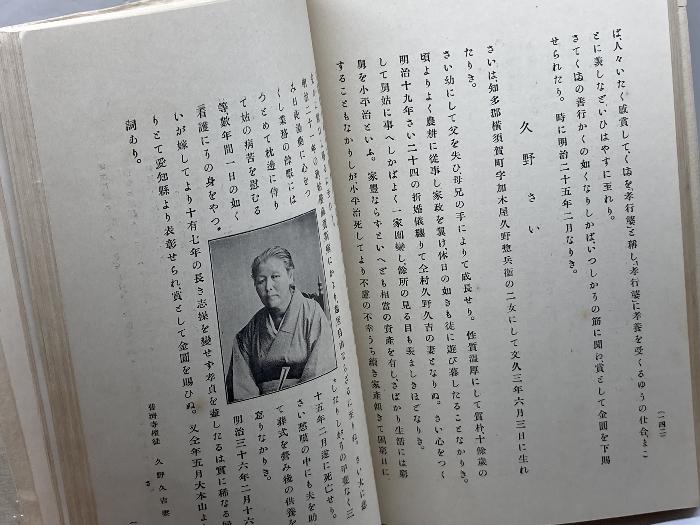 (一四二)
ば、人々いたく感賞してくほを、孝行婆と稱し、孝行婆に孝養を受くるゆうの仕合、まこ
とに羨しなど、いひはやすに至れり。
さてくほの善行かくの如くなりしかば、いつしかうの筋に聞ね賞として金圓を下賜
せられたり。時に明治二十五年二月なりき。
久野さい
さいは、知多郡横須賀町字加木屋久野惣兵衞の二女にして文久三年六月三日に生れ
たりき。
さい幼にして父を失ひ母兄の手によりて成長せり。性質温厚にして質朴十餘歳の
頃よりよく農耕に從事し家政を翼け、休日の如きも徒に遊び暮したることなかりき。
明治十九年さい二十四の折婚儀纏りて仝村久野久吉の妻となりぬ。さい心をつく
して舅姑に事へしかばよく一家團欒し、餘所の見る目も羨ましきほどなりき。
舅を小平治といふ。家豐ならずといへども相當の資產を有し、さばかり生活には窮
することもなかりしが、小平治死してより不慮の不幸うち續き家產傾きて困窮日に
くし業務の餘暇には
つとめて枕邊に侍り
て姑の病苦を慰むる
等數年間一日の如く
看護にうの身をやつ
したりしが
十五年二月遂に死亡せり。
さい悲嘆の中にも夫を助
て葬式を營み後の供養を
怠りなかりき。
明治三十六年二月十六
いが嫁してより十有七年の長き志操を變せず孝貞を盡したるは實に稀なる
りとて愛知縣より表彰せられ賞として金圓を賜ひぬ。又仝年五月大本山
詞あり。
久野久吉妻
さ